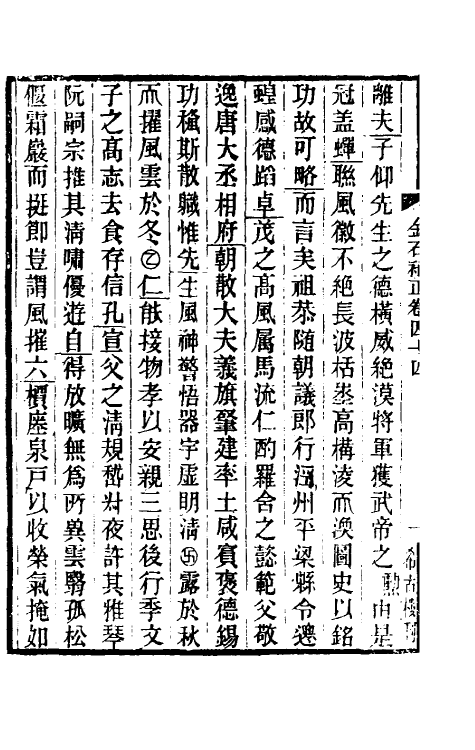 離夫子仰先生之德橫威絕漠將軍獲武帝之勳由是
冠盖蟬聯風徽不絕長波栝崟高構淩而渙圖史以銘
功故可略而言矣祖恭隨朝議郎行州平梁縣令邊
蝗感德蹈卓茂之髙風属馬流仁酌羅舍之懿範父敬
逸唐大丞相府朝散大夫義旗肇建率土咸賓褒德錫
功稱斯散職惟先生風神警悟器宇虛明清卐露於秋
而擢風雲於冬𡆠仁能接物孝以安親三思後行季文
子之髙志去食存信孔宣父之清規嵇叔夜許其雅琴
阮嗣宗推其清嘯優遊自得放曠無爲所兾雲翳孤松
偃霜嚴而挺卽豈謂風摧六櫝塵泉戶以收榮氣掩如
金石補正卷四十四
一
希古樓刊